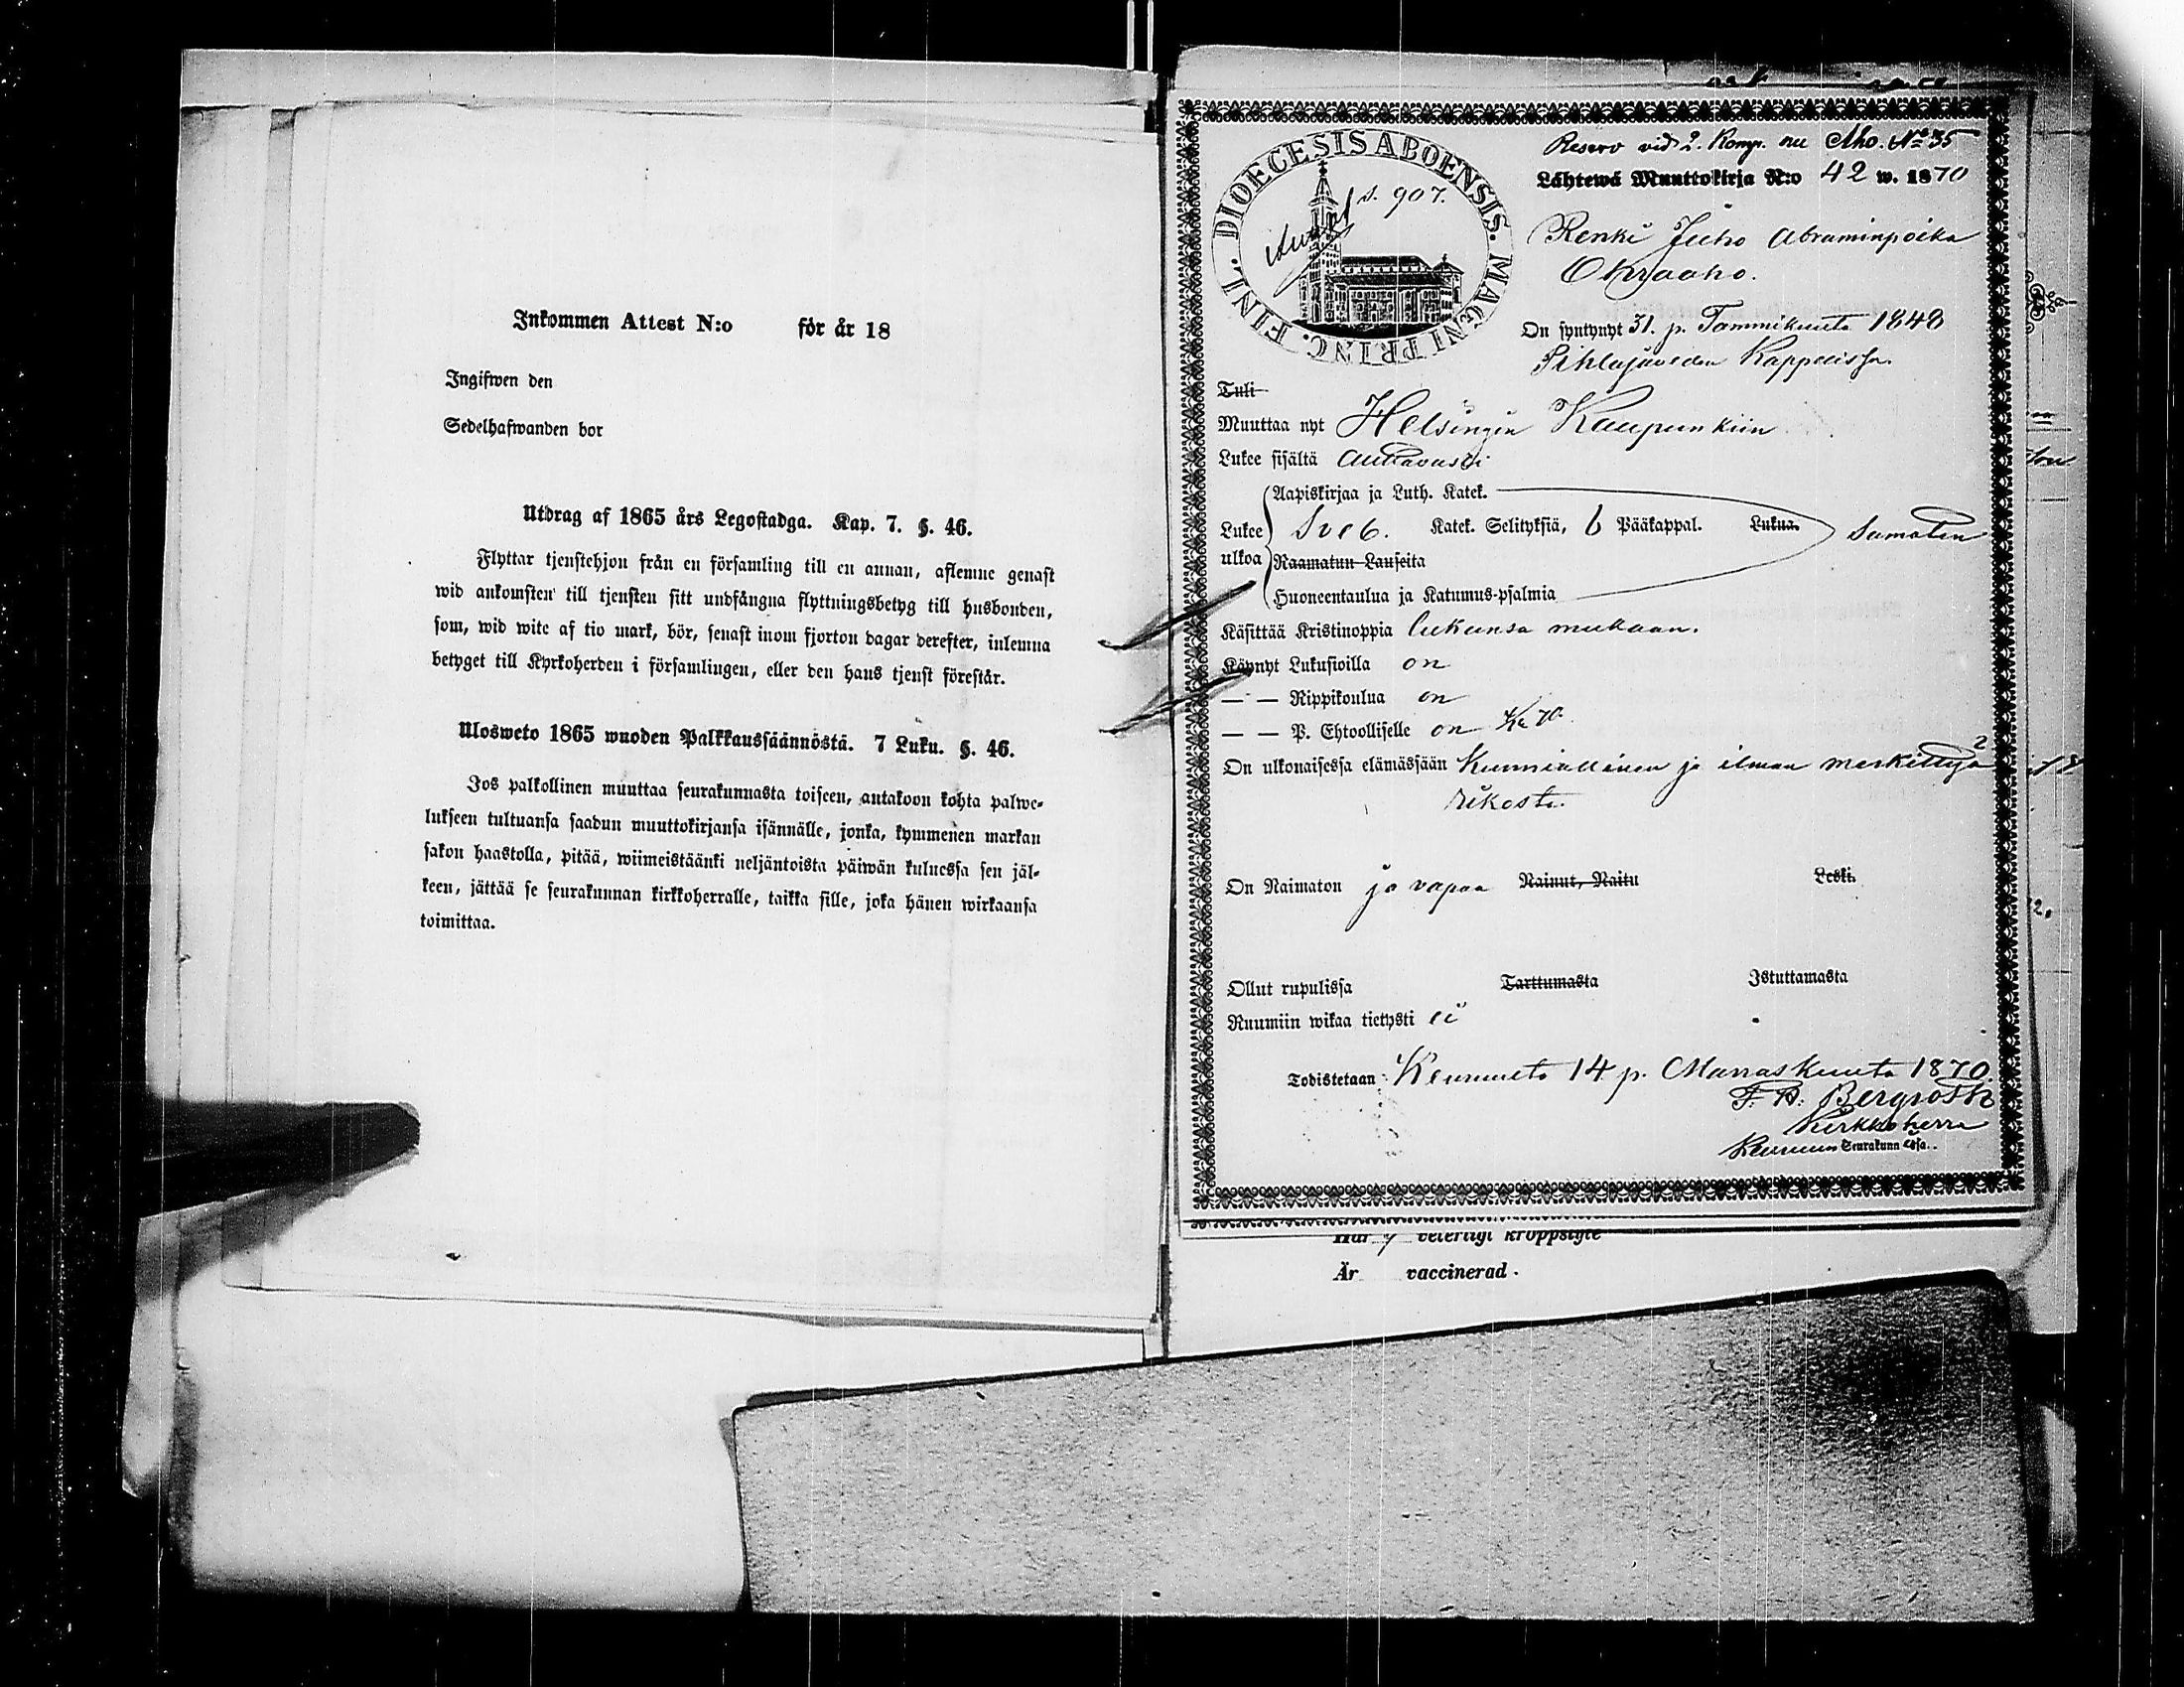 Inkommen Attest N:o för år 18
Ingifwen den
Sedelhafwanden bor
Utdrag af 1865 års Legostadga. Kap. 7. §. 46.
Flyttar tjenstehjon från en församling till en annan, aflemne genast
wid ankomsten till tjensten sitt undfångna flyttningsbetyg till husbonden,
som, wid wite af tio mark, bör, senast inom fjorton dagar derefter, inlemna
betyget till Kyrkoherden i församlingen, eller den hans tjenst förestår.
Ulosweto 1865 wuoden Palkkaussäännöstä. 7 Luku. §. 46.
Jos palkollinen muuttaa seurakunnasta toiseen, antakoon kohta palwe-
lukseen tultuansa saadun muuttokirjansa isännälle, jonka, kymmenen markan
sakon haastolla, pitää, wiimeistäänki neljäntoista päiwän kuluessa sen jäl-
keen, jättää se seurakunnan kirkkoherralle, taikka sille, joka hänen wirkaansa
toimittaa.
DIOECESIS ABOENSIS. MAGNI PRINC. FINL.
s. 907.
Reserv vid 2. Komp. nu Aho. No 35
Lähtewä Muuttokirja N:o 42 w. 1870
Renki Juho Abraminpoika
Ohraaho.
On syntynyt 31. p. Tammikuuta 1848
Pihlajaveden Kappelissa.
Tuli
Muuttaa nyt Helsingin Kaupunkiin
Lukee sisältä auttavasti
Aapiskirjaa ja Luth. Katek.
Lukee ulkoa Sveb. Katek. Selityksiä, 6 Pääkappal. Lukua. Samaten
Raamatun Lauseita
Huoneentaulua ja Katumus-psalmia
Käsittää Kristinoppia lukunsa mukaan.
Käynyt Lukusioilla on
— — Rippikoulua on
— — P. Ehtoolliselle on 70
On ulkonaisessa elämässään Kunniallinen ja ilman merkittyä
rikosta.
On Naimaton ja vapaa Nainut, Naitu Leski.
Ollut rupulissa Tarttumasta Istuttamasta
Ruumiin wikaa tietysti ei
Todistetaan: Keuruulta 14 p. Marraskuuta 1870.
F. A. Bergroth
Kirkkoherra
Keuruun Seurakunnassa.
Har ej veterligt kroppslyte
Är vaccinerad.